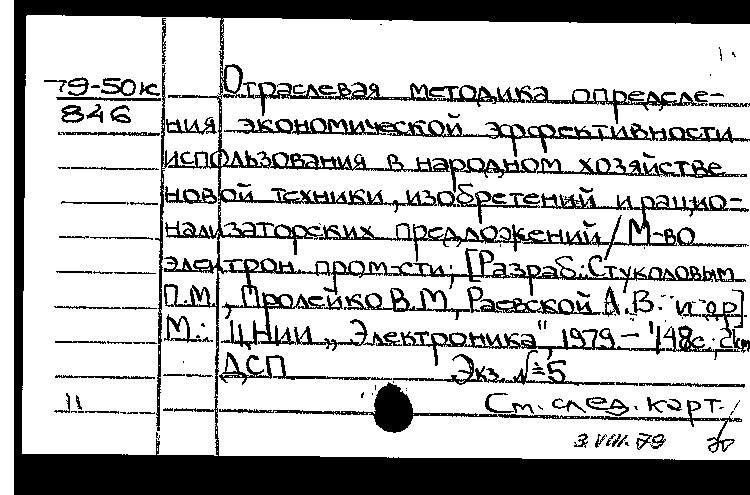 79-50к
846
Отраслевая методика определе-
ния экономической эффективности
использования в народном хозяйстве
новой техники, изобретений и рацио-
нализаторских предложений / М-во
электрон. пром-сти; [Разраб.: Стуколовым
П.М., Пролейко В.М, Раевской А.В. и др]
М.: ЦНИИ „Электроника", 1979 – 148с.;
ДСП Экз. №5
11 См. след. карт.
3.VIII.79